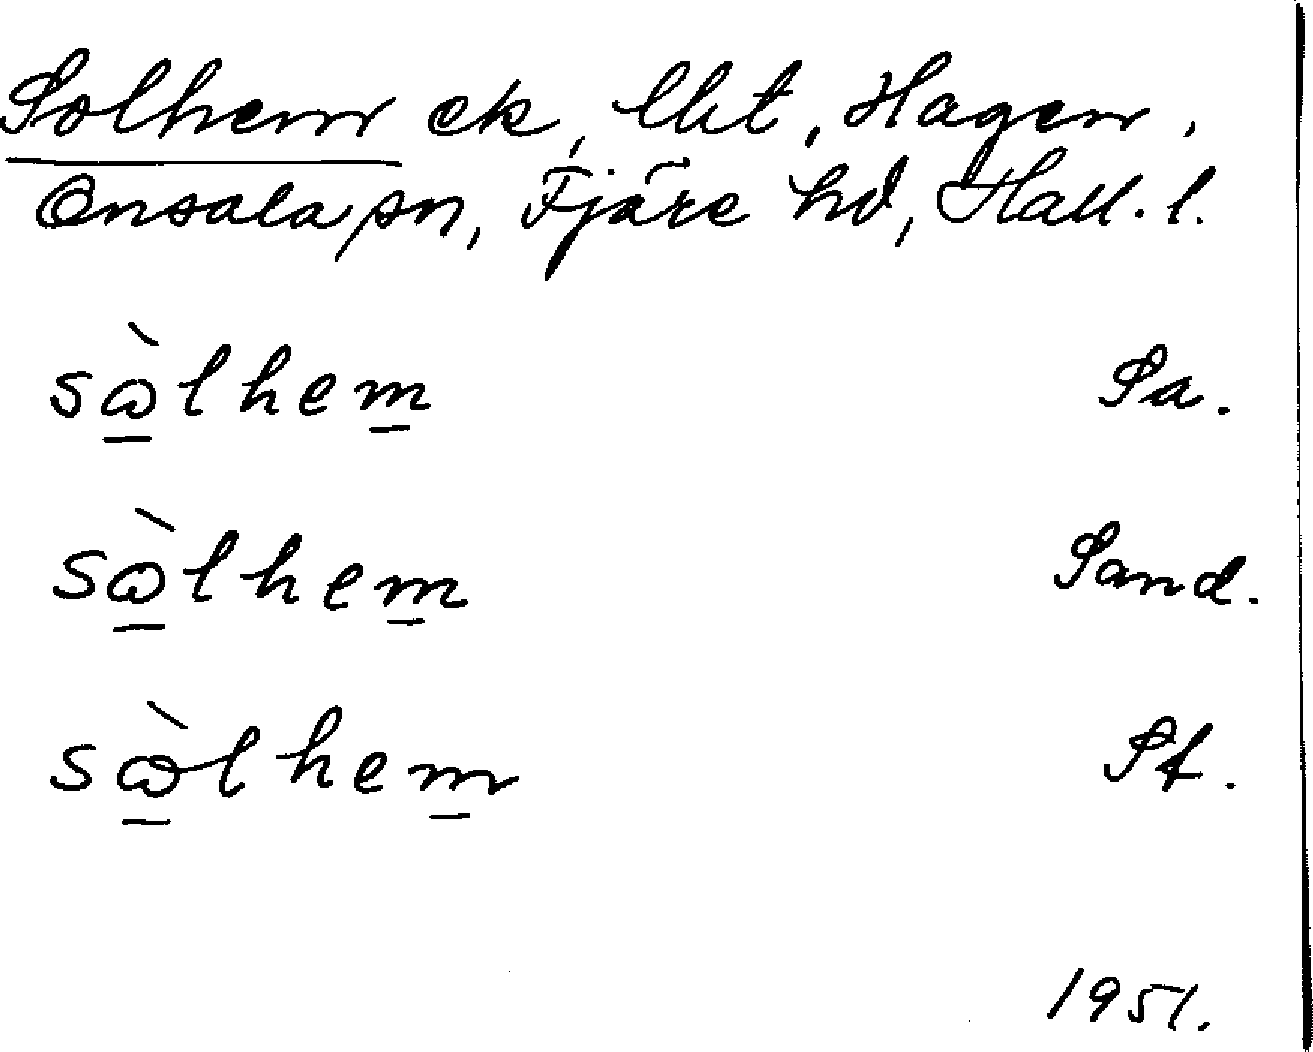 Solhem ek, lht, Hagen,
Onsala sn, Fjäre hd, Hall. l.
sὼlhem Sa.
sὼlhem Sand.
sὼlhem Sf.
1951.